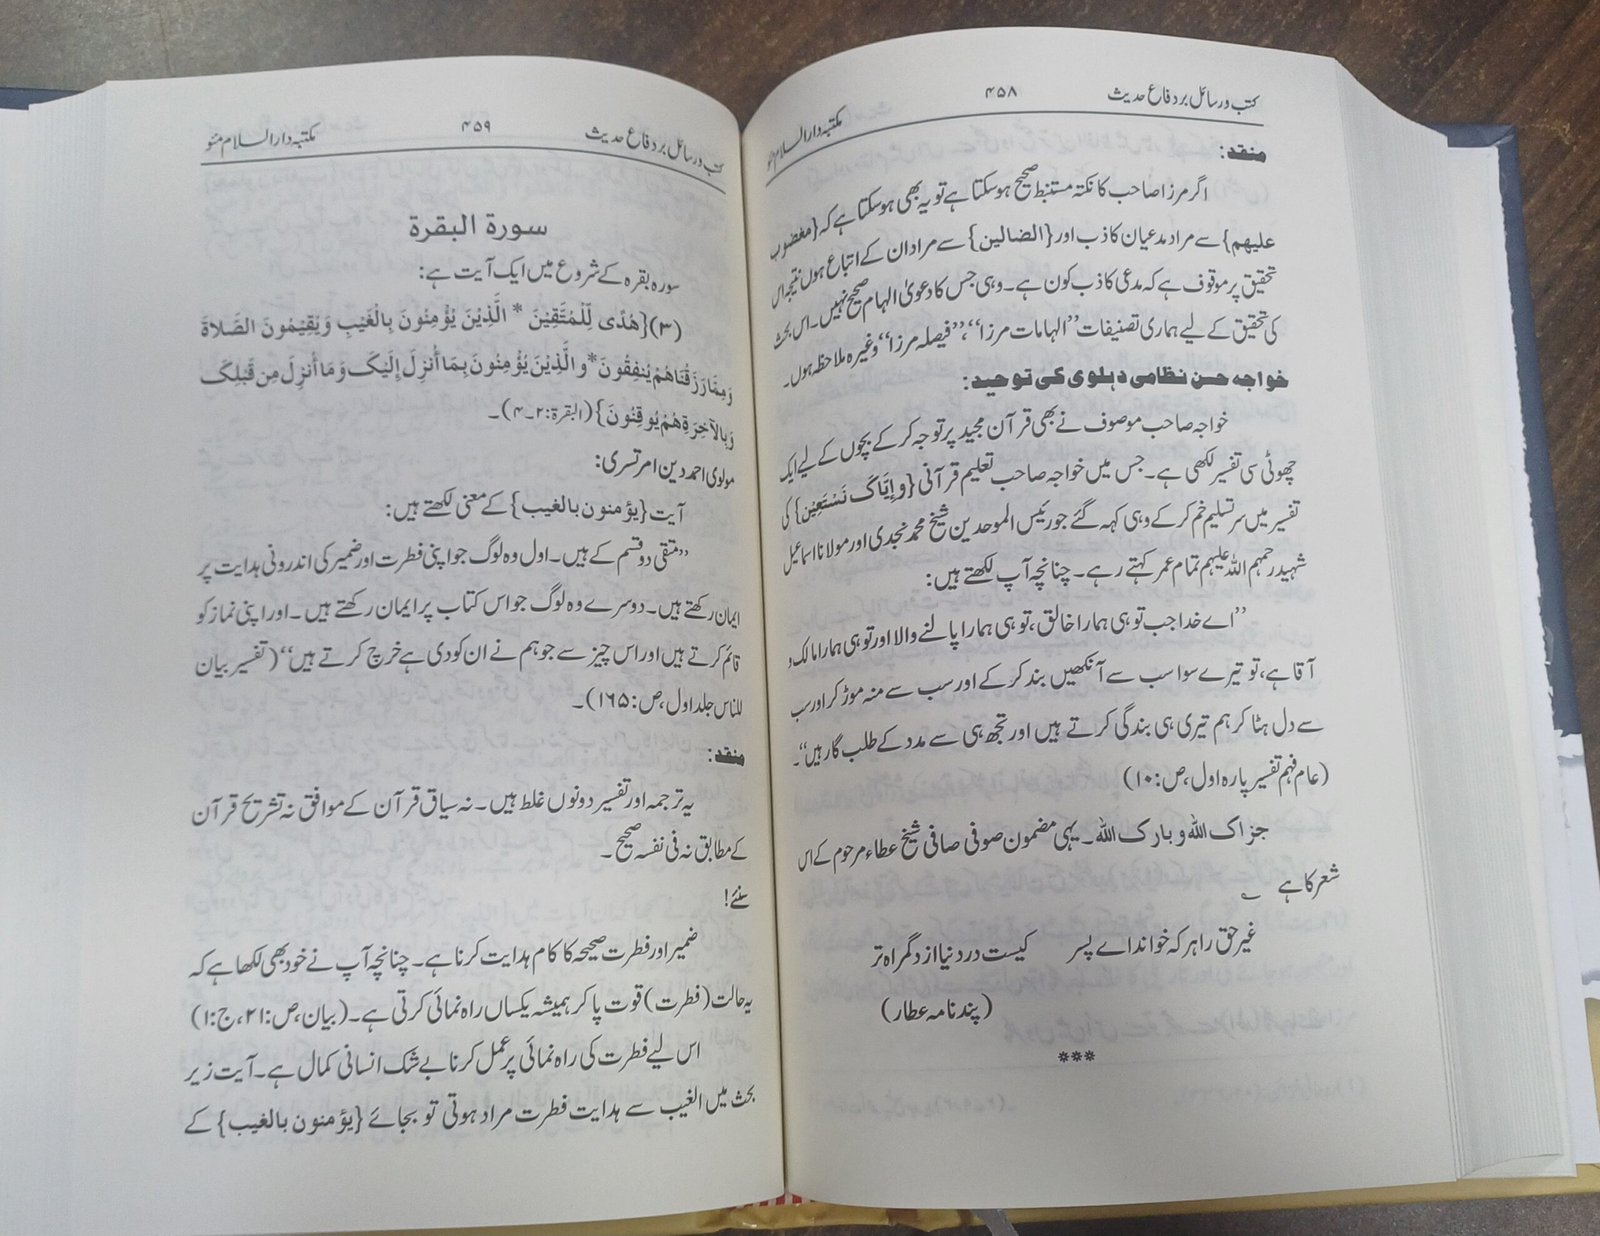 کتب ورسائل بر دفاع حدیث ۴۵۸ مکتبہ دار السلام مئو
منقد:
اگر مرزا صاحب کا نکتہ مستنبط صحیح ہوسکتا ہے تو یہ بھی ہوسکتا ہے کہ {مغضوب
علیھم} سے مراد مدعیان کاذب اور {الضالین} سے مراد ان کے اتباع ہوں نتیجہ اس
تحقیق پر موقوف ہے کہ مدعی کاذب کون ہے۔ وہی جس کا دعویٰ الہام صحیح نہیں۔ اس بحث
کی تحقیق کے لیے ہماری تصنیفات ”الہامات مرزا“، ”فیصلہ مرزا“ وغیرہ ملاحظہ ہوں۔
خواجہ حسن نظامی دہلوی کی توحید:
خواجہ صاحب موصوف نے بھی قرآن مجید پر توجہ کرکے بچوں کے لیے ایک
چھوٹی سی تفسیر لکھی ہے۔ جس میں خواجہ صاحب تعلیم قرآنی {وإیَّاکَ نَسْتَعِیْن} کی
تفسیر میں سر تسلیم خم کرکے وہی کہہ گئے جو رئیس الموحدین شیخ محمد نجدی اور مولانا اسماعیل
شہید رحمہم اللہ علیہم تمام عمر کہتے رہے۔ چنانچہ آپ لکھتے ہیں:
”اے خدا جب تو ہی ہمارا خالق، تو ہی ہمارا پالنے والا اور تو ہی ہمارا مالک و
آقا ہے، تو تیرے سوا سب سے آنکھیں بند کرکے اور سب سے منہ موڑ کر اور سب
سے دل ہٹا کر ہم تیری ہی بندگی کرتے ہیں اور تجھ ہی سے مدد کے طلب گار ہیں“۔
(عام فہم تفسیر پارہ اول، ص:۱۰)
جزاک اللہ و بارک اللہ۔ یہی مضمون صوفی صافی شیخ عطاء مرحوم کے اس
شعر کا ہے ؎
غیر حق را ہر کہ خواند اے پسر کیست در دنیا ازو گمراہ تر
(پندنامہ عطار)
***
کتب ورسائل بر دفاع حدیث ۴۵۹ مکتبہ دار السلام مئو
سورة البقرة
سورہ بقرہ کے شروع میں ایک آیت ہے:
(۳) {هُدًى لِّلْمُتَّقِيْنَ * الَّذِيْنَ يُؤْمِنُونَ بِالْغَيْبِ وَيُقِيْمُونَ الصَّلاَةَ
وَمِمَّا رَزَقْنَاهُمْ يُنفِقُونَ * و الَّذِيْنَ يُؤْمِنُونَ بِمَا أُنزِلَ إِلَيْكَ وَمَا أُنزِلَ مِن قَبْلِكَ
وَبِالآخِرَةِ هُمْ يُوقِنُونَ} (البقرة:۲۔۴)۔
مولوی احمد دین امرتسری:
آیت {یؤمنون بالغیب} کے معنی لکھتے ہیں:
”متقی دو قسم کے ہیں۔ اول وہ لوگ جو اپنی فطرت اور ضمیر کی اندرونی ہدایت پر
ایمان رکھتے ہیں۔ دوسرے وہ لوگ جو اس کتاب پر ایمان رکھتے ہیں۔ اور اپنی نماز کو
قائم کرتے ہیں اور اس چیز سے جو ہم نے ان کو دی ہے خرچ کرتے ہیں“ (تفسیر بیان
للناس جلد اول، ص:۱۶۵)۔
منقد:
یہ ترجمہ اور تفسیر دونوں غلط ہیں۔ نہ سیاق قرآن کے موافق نہ تشریح قرآن
کے مطابق نہ فی نفسہ صحیح۔
سنئے!
ضمیر اور فطرت صحیحہ کا کام ہدایت کرنا ہے۔ چنانچہ آپ نے خود بھی لکھا ہے کہ
یہ حالت (فطرت) قوت پاکر ہمیشہ یکساں راہ نمائی کرتی ہے۔ (بیان، ص:۲۱، ج:۱)
اس لیے فطرت کی راہ نمائی پر عمل کرنا بے شک انسانی کمال ہے۔ آیت زیر
بحث میں الغیب سے ہدایت فطرت مراد ہوتی تو بجائے {یؤمنون بالغیب} کے